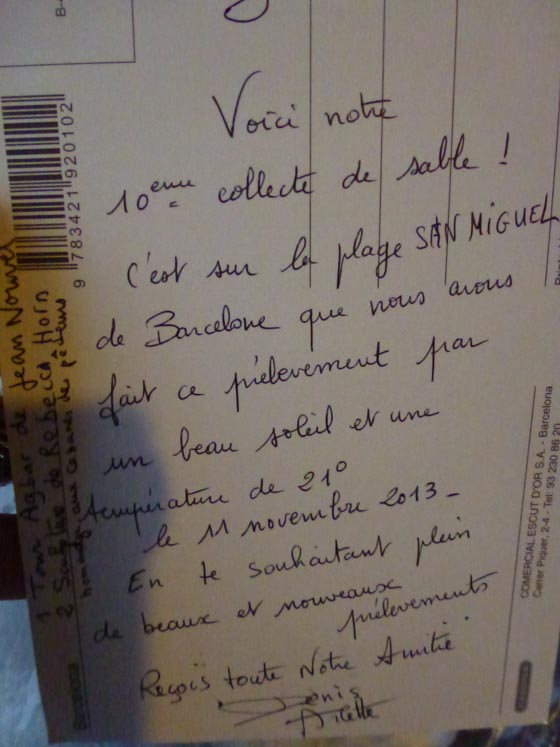 Voici notre
10ème collecte de sable !
C'est sur la plage SAN MIGUEL
de Barcelone que nous avons
fait ce prélevement par
un beau soleil et une
température de 21°
le 11 novembre 2013 -
En te souhaitant plein
de beaux et nouveaux
prélevements
Reçois toute Notre Amitié.
Denis
Arlette
B-
9 783421 920102
1 Tour Agbar de Jean Nouvel
2 Sculpture de Rebecca Horn
hommage aux cabanes des pêcheurs
Barcelona
COMERCIAL ESCUT D'OR S.A. - Barcelona
Carrer Piquer, 2-4 - Tel. 93 230 86 20